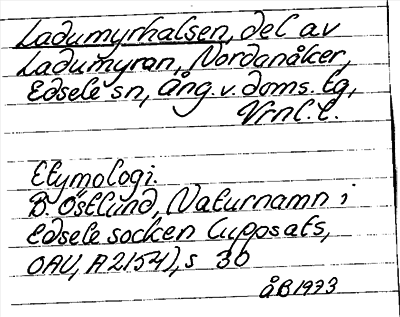 Ladumyrhalsen, del av
Ladumyran, Nordanåker,
Edsele sn, Ång. v. doms. tg,
Vrnl. l.
Etymologi.
B. Östlund, Naturnamn i
Edsele socken (uppsats,
OAU, A 2154), s 30
ÅB 1973